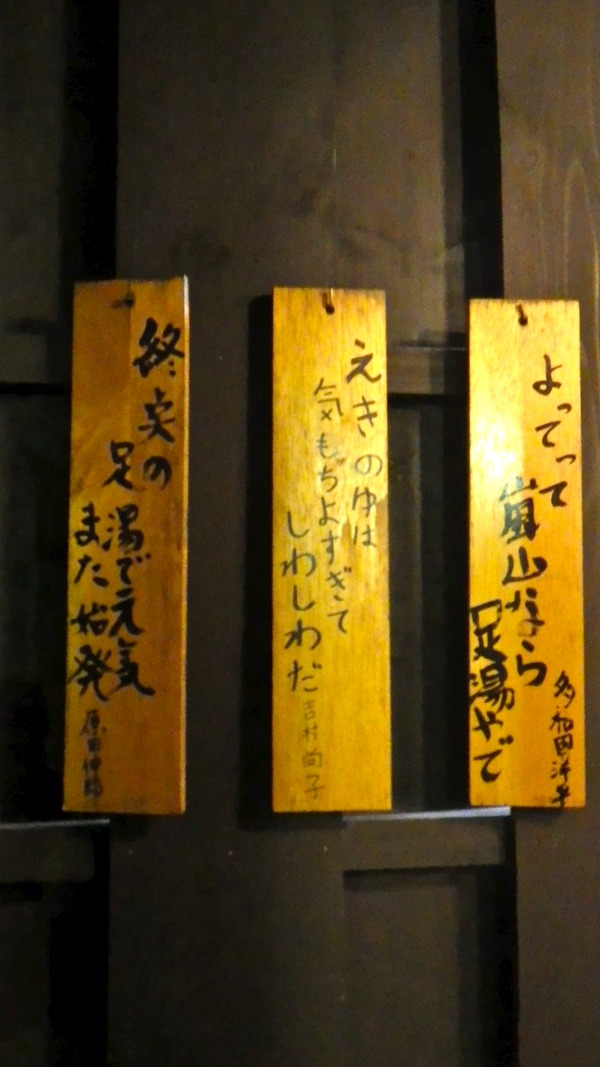 よってって
嵐山なら
足湯やで
多和田洋平
えきのゆは
気もちよすぎて
しわしわだ
吉村尚子
終点の
足湯で元気
また始発
原田伸